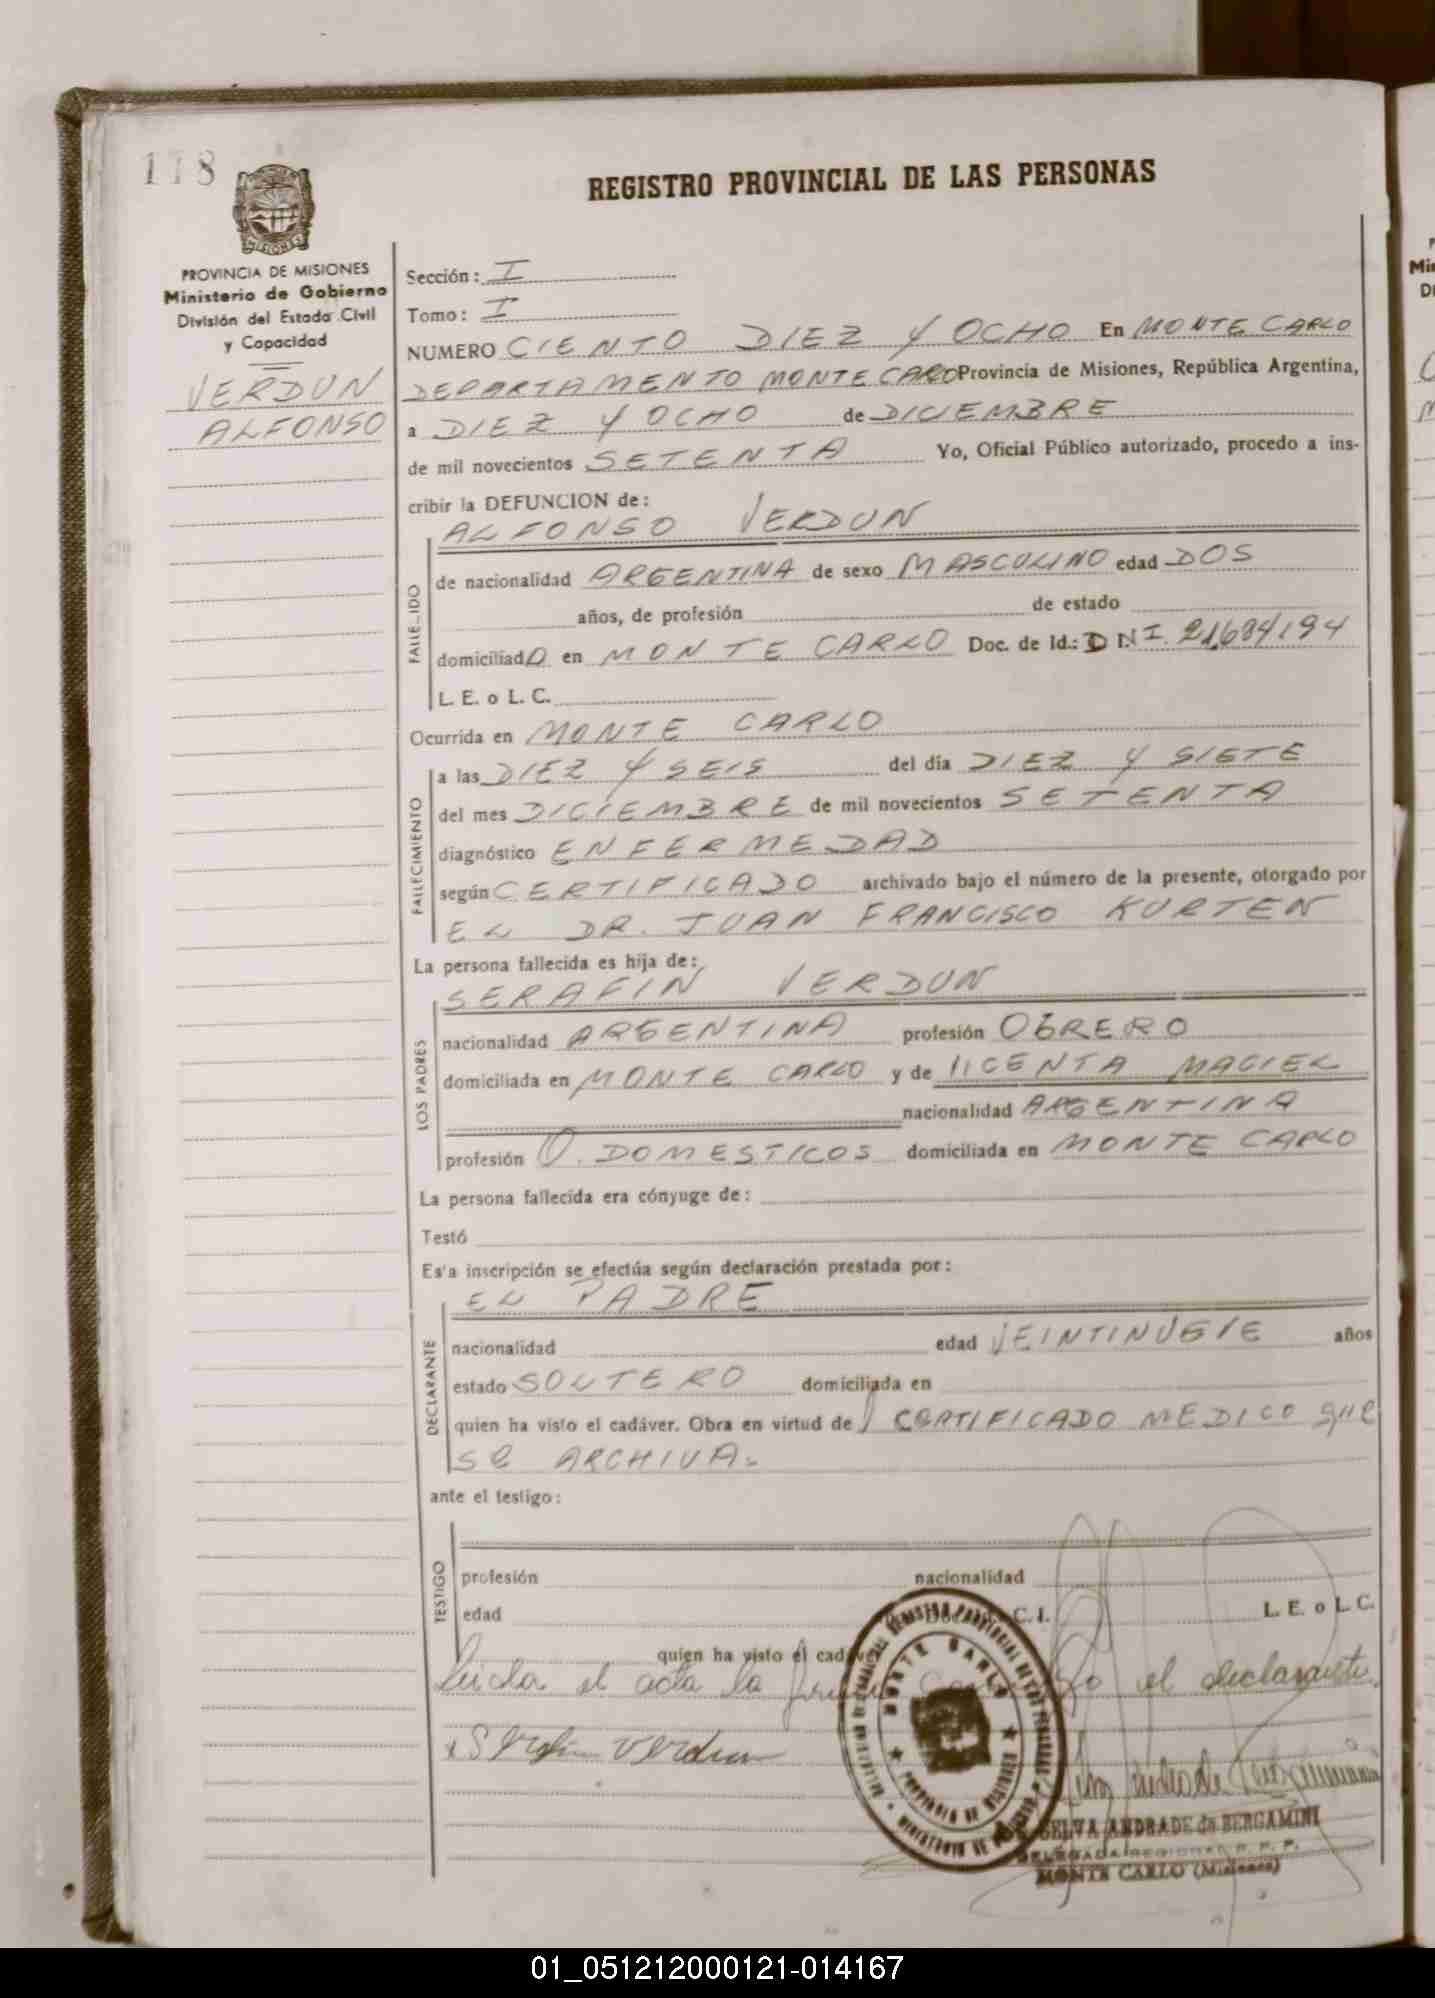 118
REGISTRO PROVINCIAL DE LAS PERSONAS
MISIONES
PROVINCIA DE MISIONES
Ministerio de Gobierno
División del Estado Civil
y Capacidad
VERDUN
ALFONSO
Sección: I
Tomo: I
NUMERO CIENTO DIEZ Y OCHO En MONTE CARLO
DEPARTAMENTO MONTE CARLO Provincia de Misiones, República Argentina,
a DIEZ Y OCHO de DICIEMBRE
de mil novecientos SETENTA Yo, Oficial Público autorizado, procedo a ins-
cribir la DEFUNCION de:
ALFONSO VERDUN
FALLE_IDO
de nacionalidad ARGENTINA de sexo MASCULINO edad DOS
años, de profesión de estado
domiciliadO en MONTE CARLO Doc. de Id.: D N.I. 21.684194
L. E. o L. C.
Ocurrida en MONTE CARLO
FALLECIMIENTO
a las DIEZ Y SEIS del día DIEZ Y SIETE
del mes DICIEMBRE de mil novecientos SETENTA
diagnóstico ENFERMEDAD
según CERTIFICADO archivado bajo el número de la presente, otorgado por
EL DR. JUAN FRANCISCO KURTEN
La persona fallecida es hija de:
SERAFIN VERDUN
LOS PADRES
nacionalidad ARGENTINA profesión OBRERO
domiciliada en MONTE CARLO y de VICENTA MACIEL
nacionalidad ARGENTINA
profesión Q. DOMESTICOS domiciliada en MONTE CARLO
La persona fallecida era cónyuge de:
Testó
Es'a inscripción se efectúa según declaración prestada por:
EL PADRE
DECLARANTE
nacionalidad edad VEINTINUEVE años
estado SOLTERO domiciliada en
quien ha visto el cadáver. Obra en virtud de CERTIFICADO MEDICO que
se ARCHIVA.
ante el testigo:
TESTIGO
profesión nacionalidad
edad C. I. L. E. o L. C.
quien ha visto el cadáver
Leida el acta la firma el declarante.
Serafin Verdun
MONTE CARLO
PROVINCIA DE MISIONES
SELVA ANDRADE de BERGAMINI
DELEGADA REGIONAL R. P. P.
MONTE CARLO (Misiones)
01_051212000121-014167